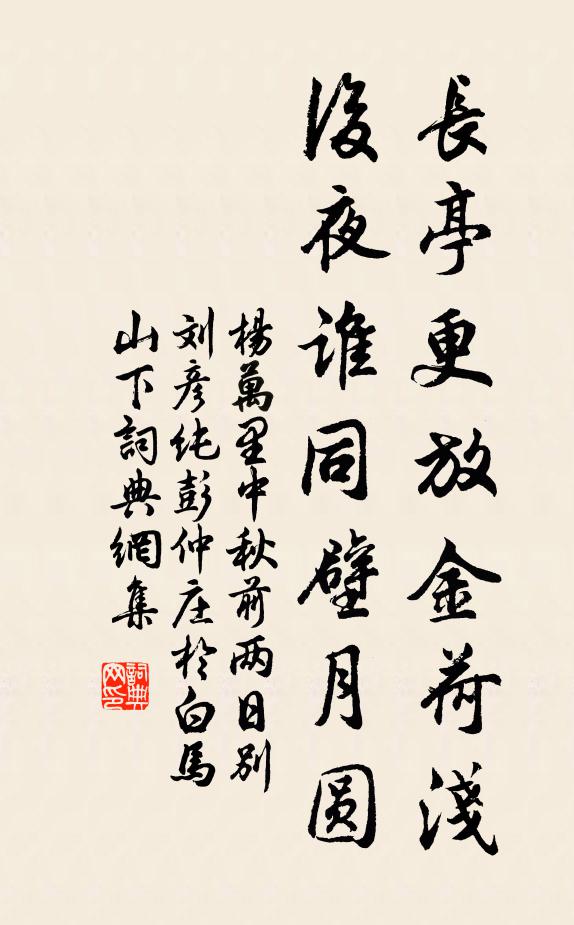 長亭更放金荷淺
後夜誰同璧月圆
楊萬里中秋前两日别
刘彦纯彭仲庄於白馬
山下詞典網集
詞典
网印